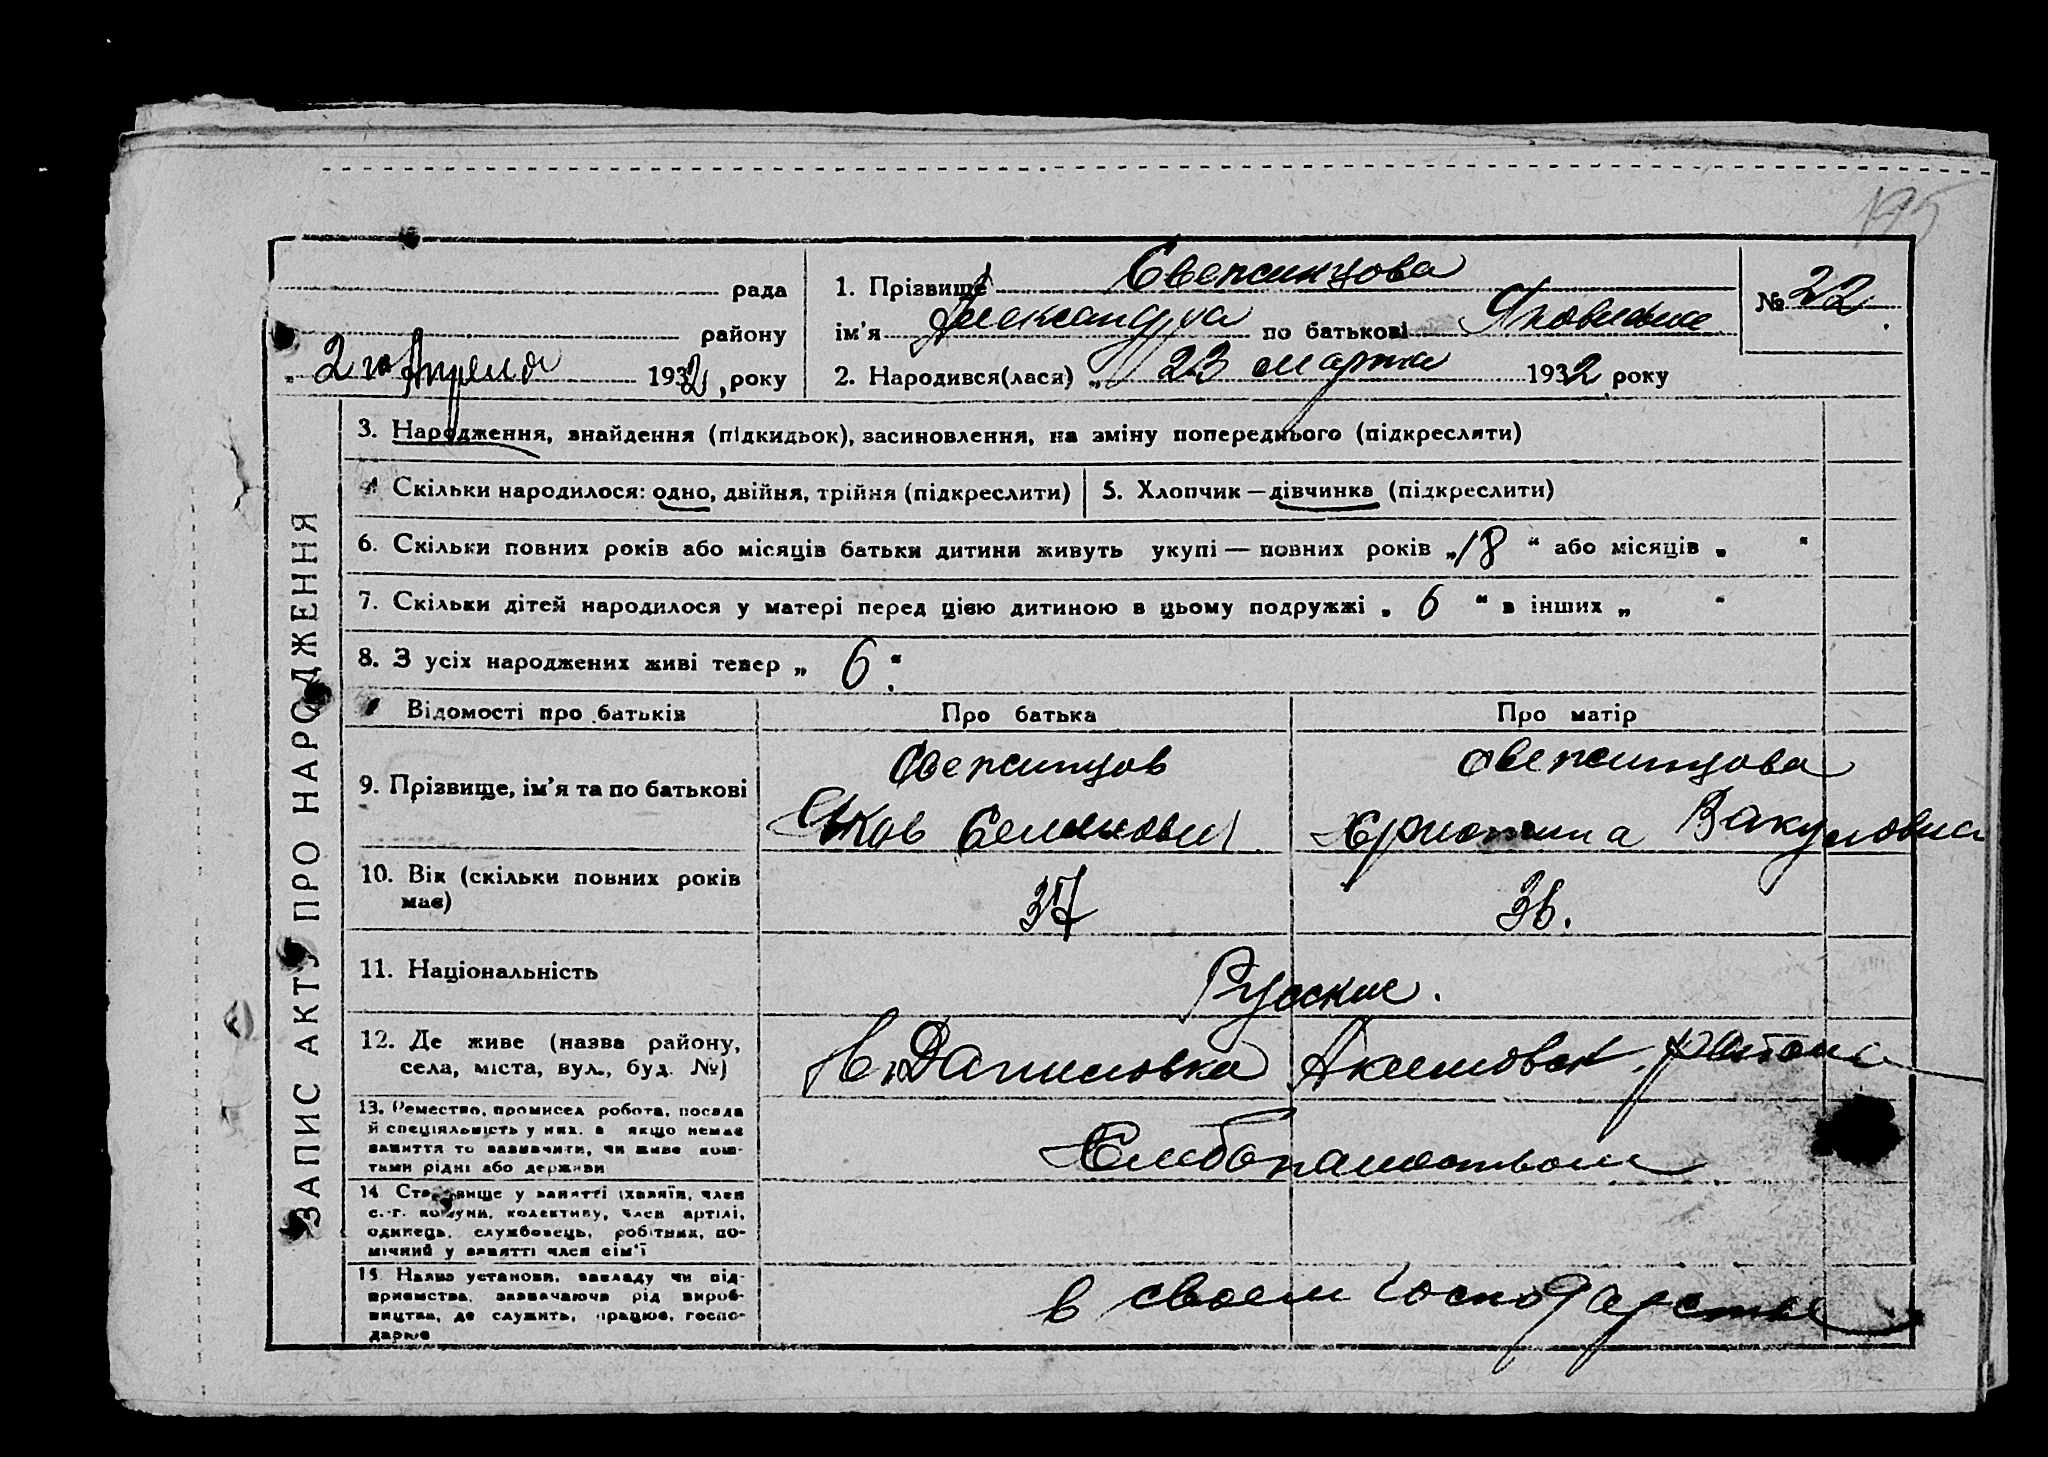 195
рада
району
2го Апреля 1932, року
1. Прізвище Свежинцова
ім'я Александра по батькові Яковлевна
№ 22
2. Народився(лася) „ 23 марта 1932 року
ЗАПИС АКТУ ПРО НАРОДЖЕННЯ
3. Народження, знайдення (підкидьок), засиновлення, на зміну попереднього (підкреслити)
4 Скільки народилося: одно, двійня, трійня (підкреслити) 5. Хлопчик — дівчинка (підкреслити)
6. Скільки повних років або місяців батьки дитини живуть укупі — повних років „ 18 “ або місяців „ “
7. Скільки дітей народилося у матері перед цією дитиною в цьому подружжі „ 6 “ в інших „ “
8. З усіх народжених живі тепер „ 6 “
Відомості про батьків Про батька Про матір
9. Прізвище, ім'я та по батькові
Свежинцов Свежинцова
Яков Семенович Христина Вакуловна
10. Вік (скільки повних років
має)
37 36.
11. Національність Русские.
12. Де живе (назва району,
села, міста, вул., буд. №)
Н. Даниловка Акимовск. района
13. Ремество, промисел робота, посада
й спеціяльність у них, а якщо немає
заняття то зазначити, чи живе кош-
тами рідні або держави
Хлебопашеством
14 Становище у занятті (хазяїн, член
с.-г. комуни, колективу, член артілі,
одинець, службовець, робітник, по-
мічний у занятті член сім'ї
15. Назва установи, закладу чи під-
приємства, зазначаючи рід вироб-
ництва, де служить, працює, госпо-
дарює
в своем господарстве